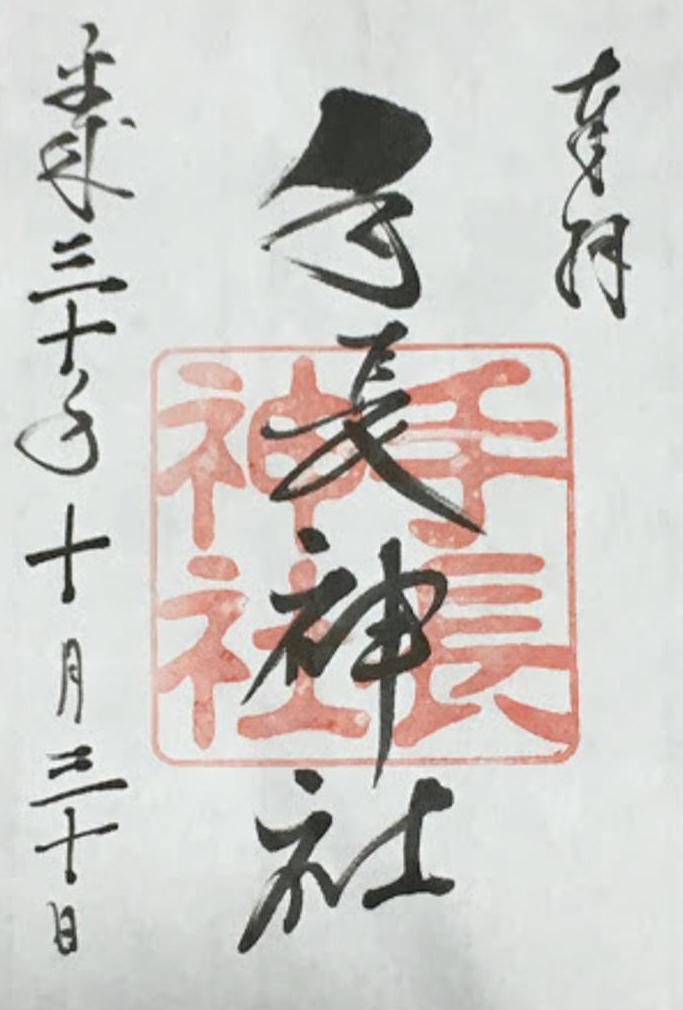 奉拝
手長神社
手長
神社
平成三十年十月三十日